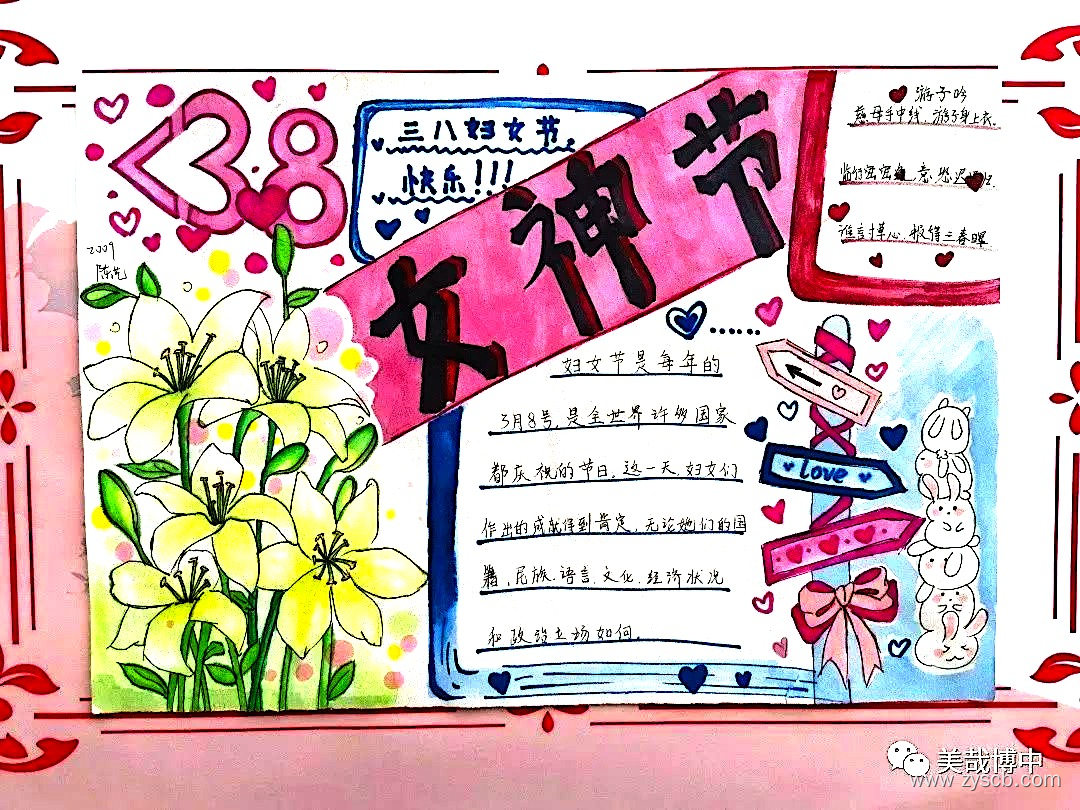 38
三八妇女节
快乐!!!
女神节
游子吟
慈母手中线，游子身上衣.
临行密密
意恐迟
谁言寸草心，报得三春晖
2009
妇女节是每年的
3月8号，是全世界许多国家
都庆祝的节日，这一天，妇女们
作出的成就得到肯定，无论她们的国
籍、民族、语言、文化、经济状况
和政治立场如何.
Love
美哉博中
www.zyscb.com